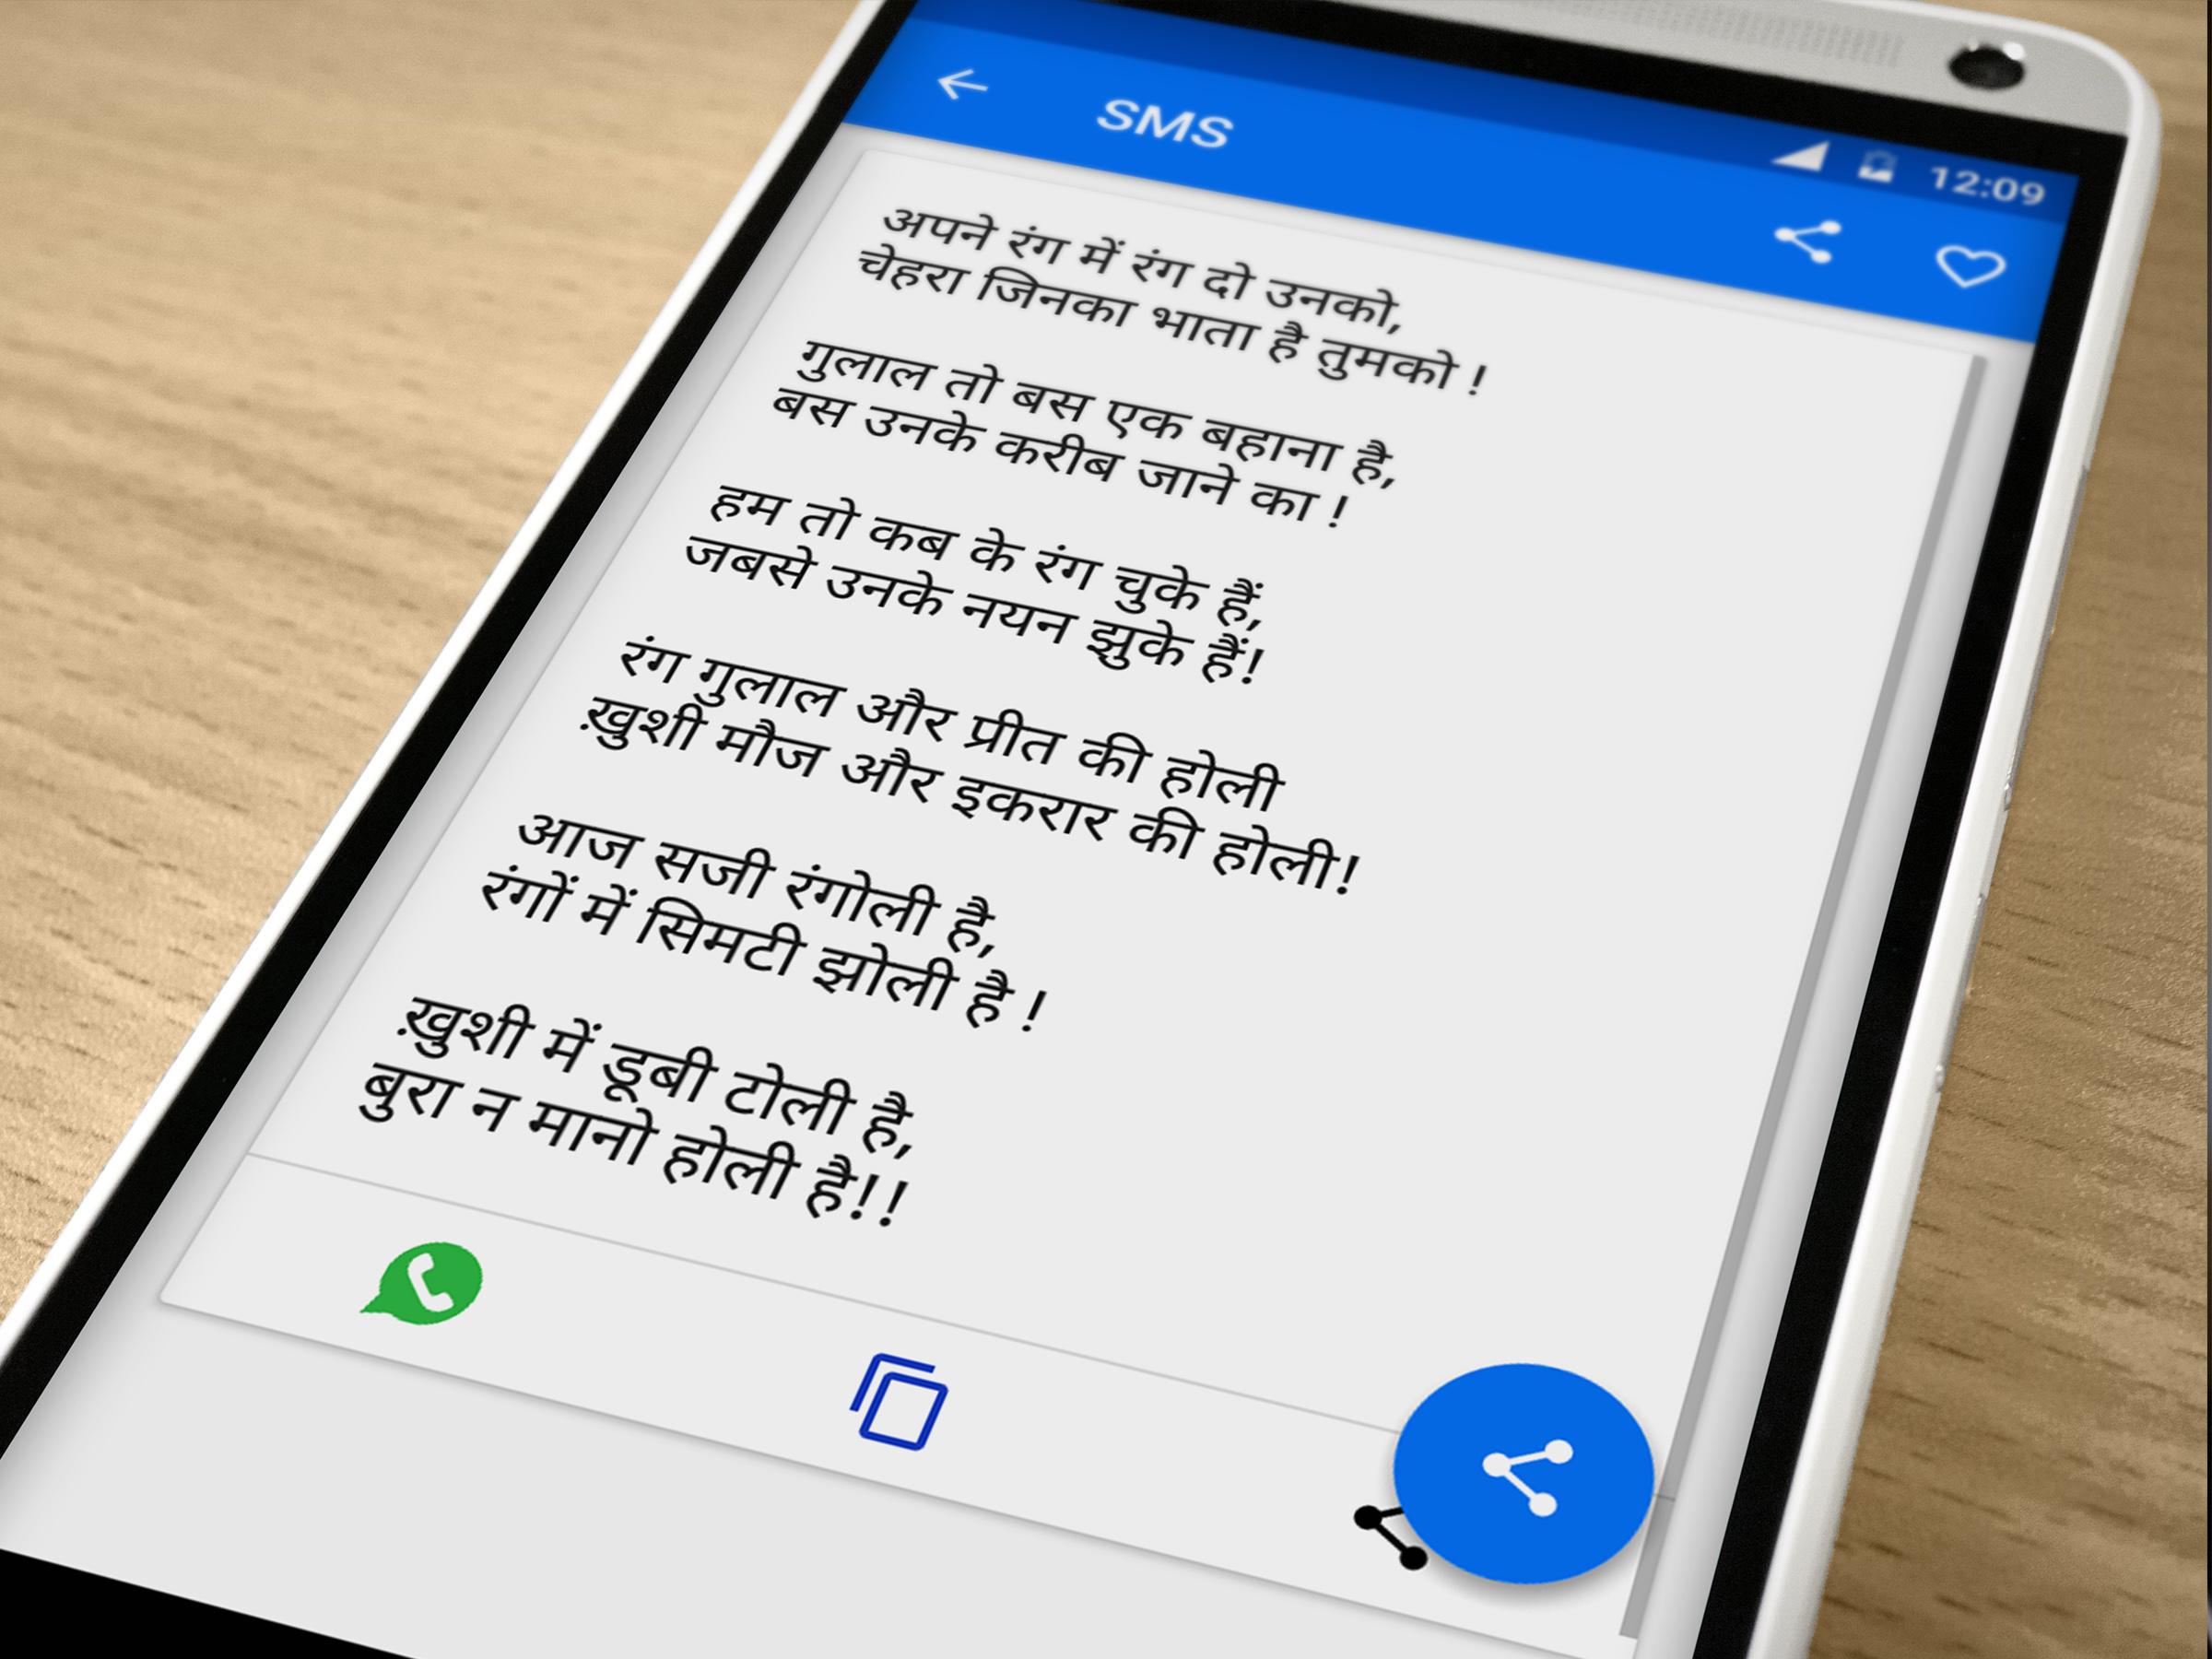 SMS
12:09
अपने रंग में रंग दो उनको,
चेहरा जिनका भाता है तुमको !
गुलाल तो बस एक बहाना है,
बस उनके करीब जाने का !
हम तो कब के रंग चुके हैं,
जबसे उनके नयन झुके हैं!
रंग गुलाल और प्रीत की होली
ख़ुशी मौज और इकरार की होली!
आज सजी रंगोली है,
रंगों में सिमटी झोली है !
ख़ुशी में डूबी टोली है,
बुरा न मानो होली है!!